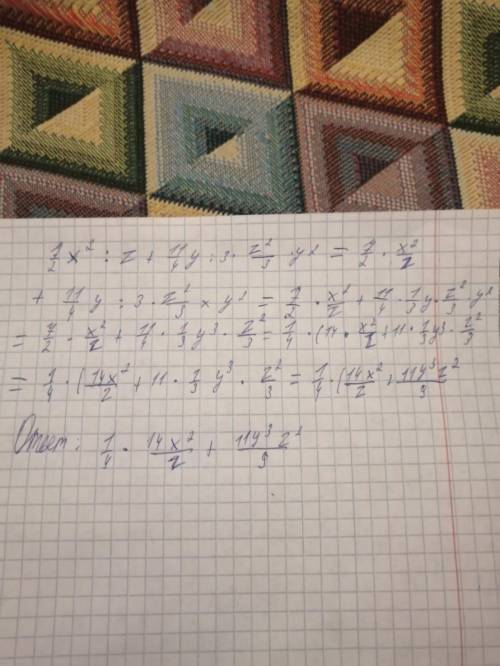 7/2 x² : z + 11/4 y : 3 · z²/3 · y² = 7/2 · x²/z
+ 11/4 y : 3 · z²/3 × y² = 7/2 · x²/z + 11/4 · 1/3 y · z²/3 · y²
= 7/2 · x²/z + 11/4 · 1/3 y³ · z²/3 = 1/4 · (14 · x²/z + 11 · 1/3 y³ · z²/3
= 1/4 · (14x²/z + 11 · 1/3 y³ · z²/3 = 1/4 · (14x²/z + 11y³z²/9
Ответ: 1/4 · 14x²/z + 11y³z²/9